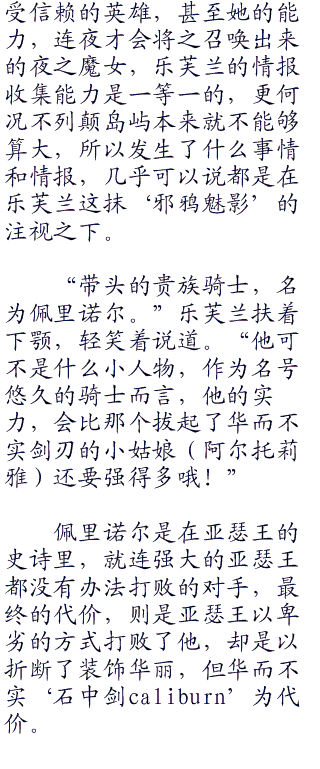 受信赖的英雄，甚至她的能
力，连夜才会将之召唤出来
的夜之魔女，乐芙兰的情报
收集能力是一等一的，更何
况不列颠岛屿本来就不能够
算大，所以发生了什么事情
和情报，几乎可以说都是在
乐芙兰这抹‘邪鸦魅影’的
注视之下。
“带头的贵族骑士，名
为佩里诺尔。”乐芙兰扶着
下颚，轻笑着说道。“他可
不是什么小人物，作为名号
悠久的骑士而言，他的实
力，会比那个拔起了华而不
实剑刃的小姑娘（阿尔托莉
雅）还要强得多哦！”
佩里诺尔是在亚瑟王的
史诗里，就连强大的亚瑟王
都没有办法打败的对手，最
终的代价，则是亚瑟王以卑
劣的方式打败了他，却是以
折断了装饰华丽，但华而不
实‘石中剑caliburn’为代
价。